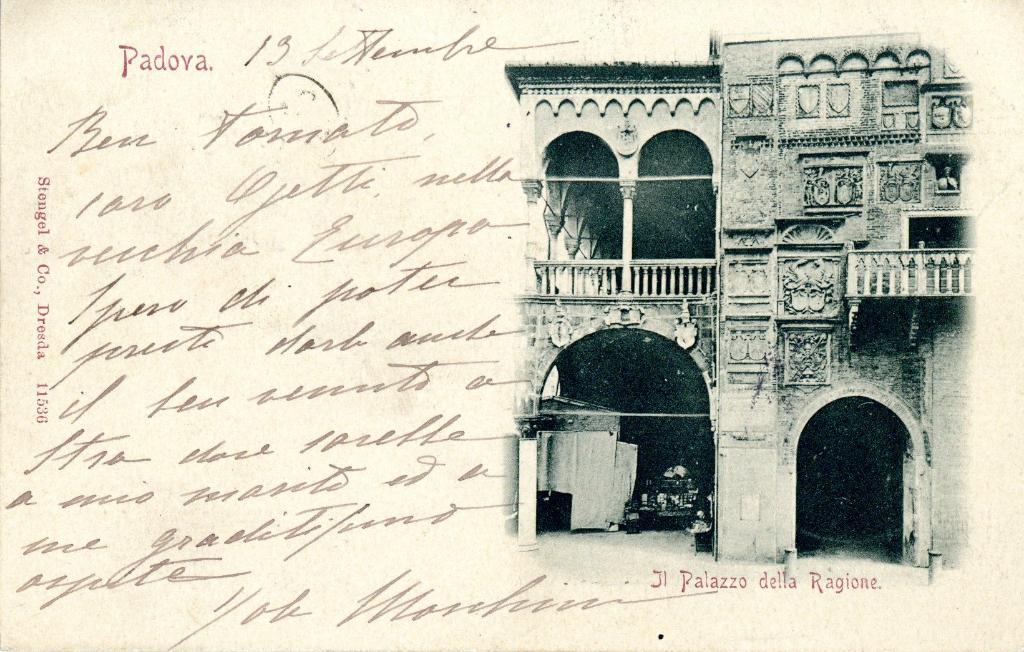 Padova.
13 Settembre
Ben tornato,
caro Ojetti nella
vecchia Europa
Spero di poter
presto darle anche
il ben venuto a
Stra dove sarebbe
a mio marito ed a
me graditissimo
ospite
Moschini
Il Palazzo della Ragione.
Stengel & Co., Dresda 11536